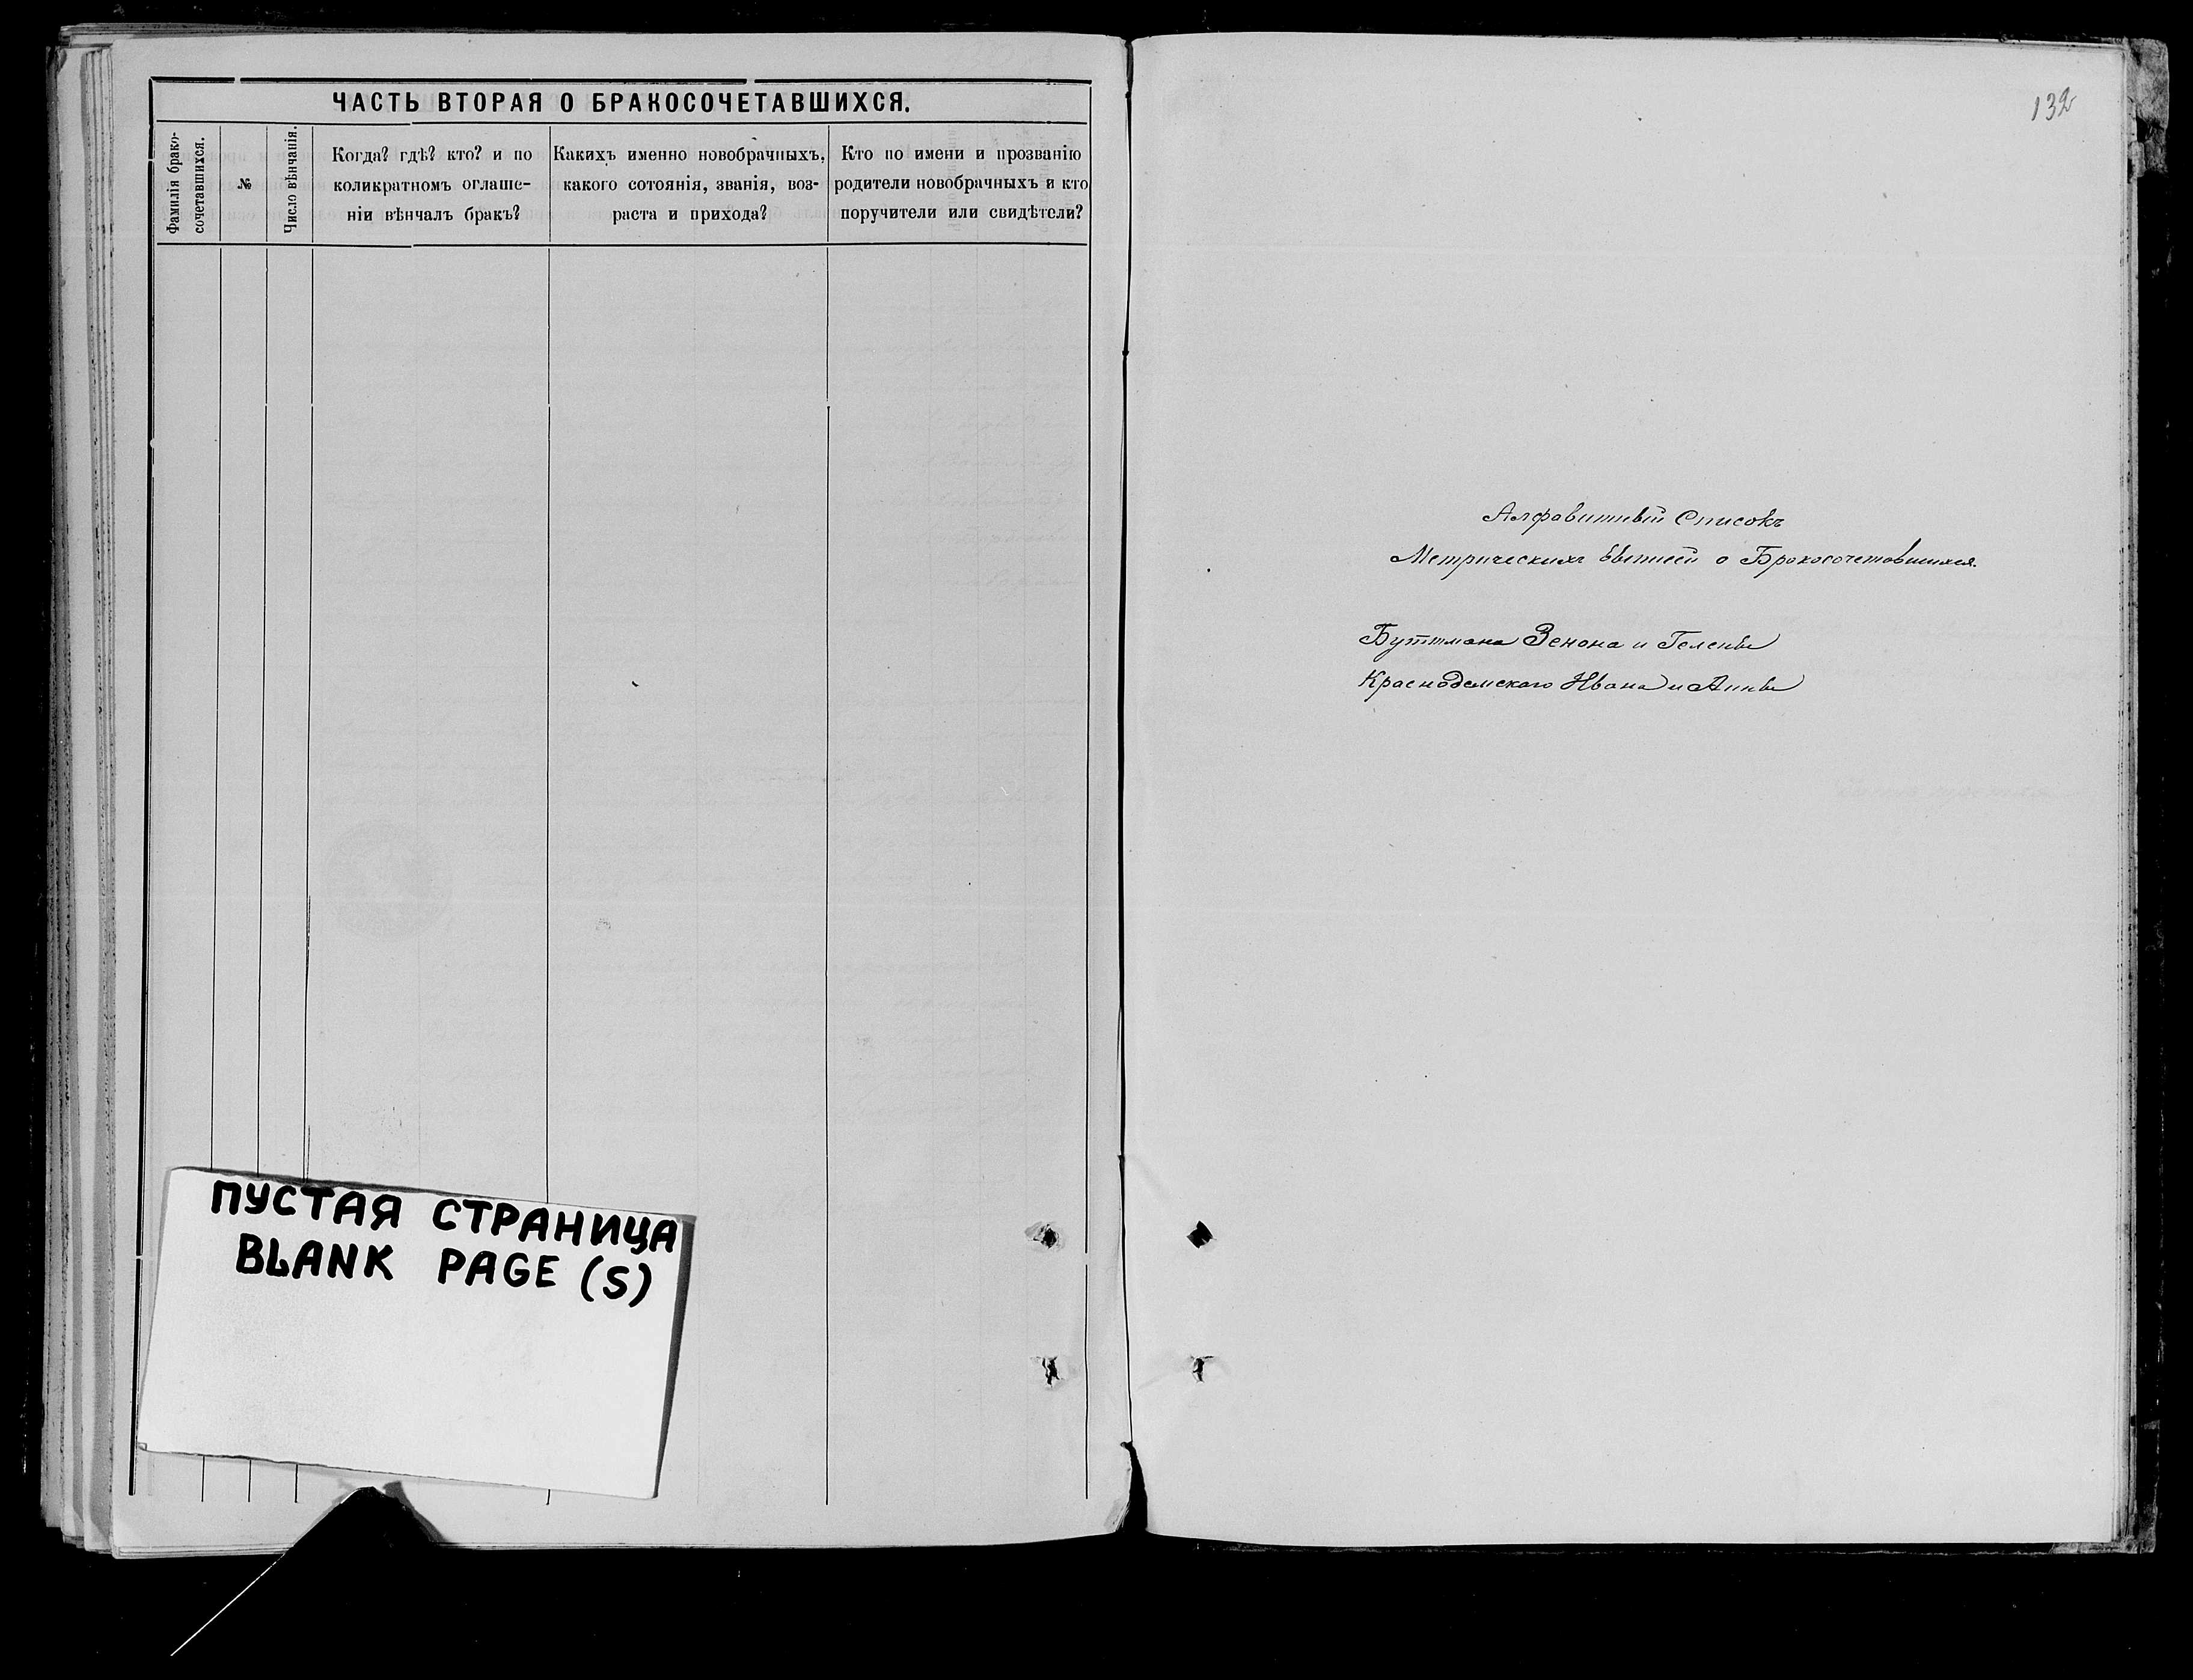 ЧАСТЬ ВТОРАЯ О БРАКОСОЧЕТАВШИХСЯ.
Фамилія брако-
сочетавшихся.
№
Число вѣнчанія.
Когда? гдѣ? кто? и по
коликратномъ оглаше-
ніи вѣнчалъ бракъ?
Какихъ именно новобрачныхъ,
какого сотоянія, званія, воз-
раста и прихода?
Кто по имени и прозванію
родители новобрачныхъ и кто
поручители или свидѣтели?
ПУСТАЯ СТРАНИЦА
BLANK PAGE (S)
132
Алфавитный Списокъ
Метрическихъ о Бракосочетавшихся.
Буттмана Зенона и Гелены
Ивана и Анны